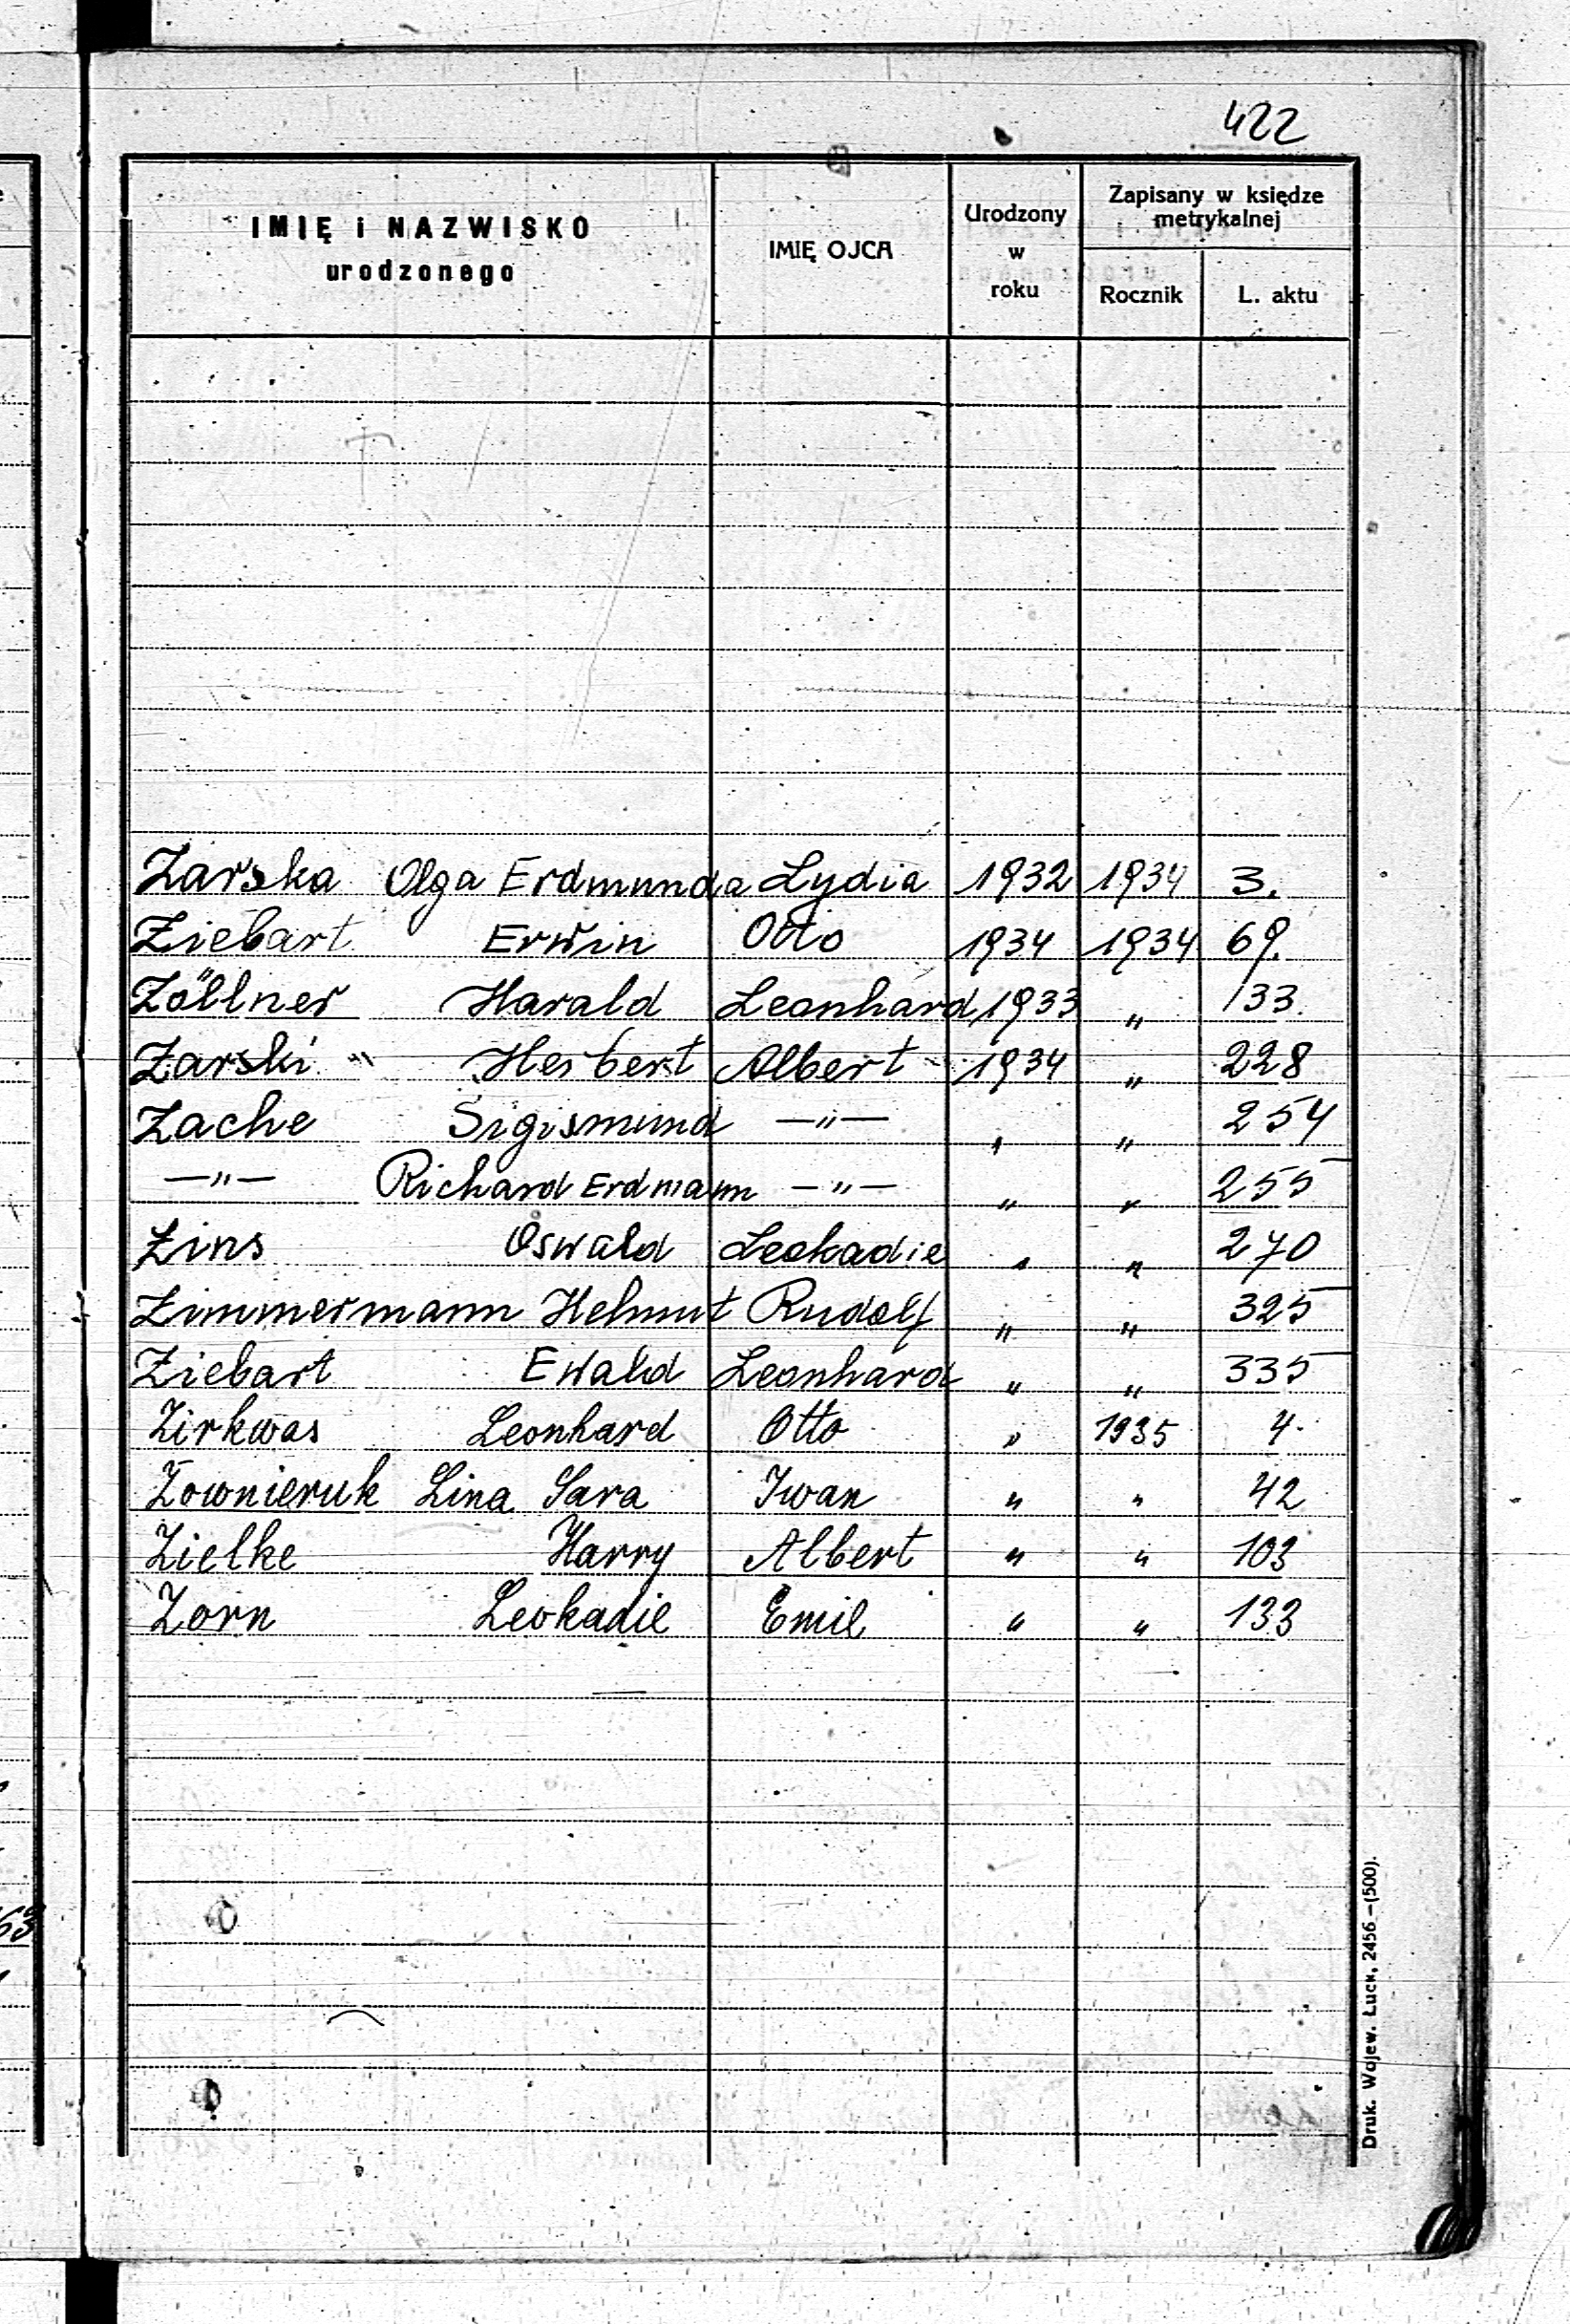 422
IMIĘ i NAZWISKO
urodzonego
IMIĘ OJCA
Urodzony
w
roku
Zapisany w księdze
metrykalnej
Rocznik
L. aktu
Zarska Olga Erdmunda Lydia 1932 1934 3.
Ziebart Erwin Otto 1934 1934 69.
Zöllner Harald Leonhard 1933 " 133.
Zarski Herbert Albert 1934 " 228
Zache Sigismund —"— " " 254
—"— Richard Erdmann —"— " " 255
Zins Oswald Leokadie " " 270
Zimmermann Helmut Rudolf " " 325
Ziebart Ewald Leonhard " " 335
Zirkwas Leonhard Otto " 1935 4.
Żownieruk Lina Sara Iwan " " 42
Zielke Harry Albert " " 103
Zorn Leokadie Emil " " 133
Druk. Wojew. Łuck, 2456 —(500).